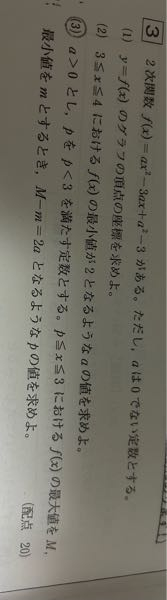 3 2次関数 f(x)=ax²-3ax+a²-3 がある。ただし, a は0でない定数とする。
(1) y=f(x) のグラフの頂点の座標を求めよ。
(2) 3≦x≦4 における f(x) の最小値が2となるような a の値を求めよ。
(3) a>0 とし, p を p<3 を満たす定数とする。p≦x≦3 における f(x) の最大値を M,
最小値を m とするとき, M-m=2a となるような p の値を求めよ。
(配点 20)